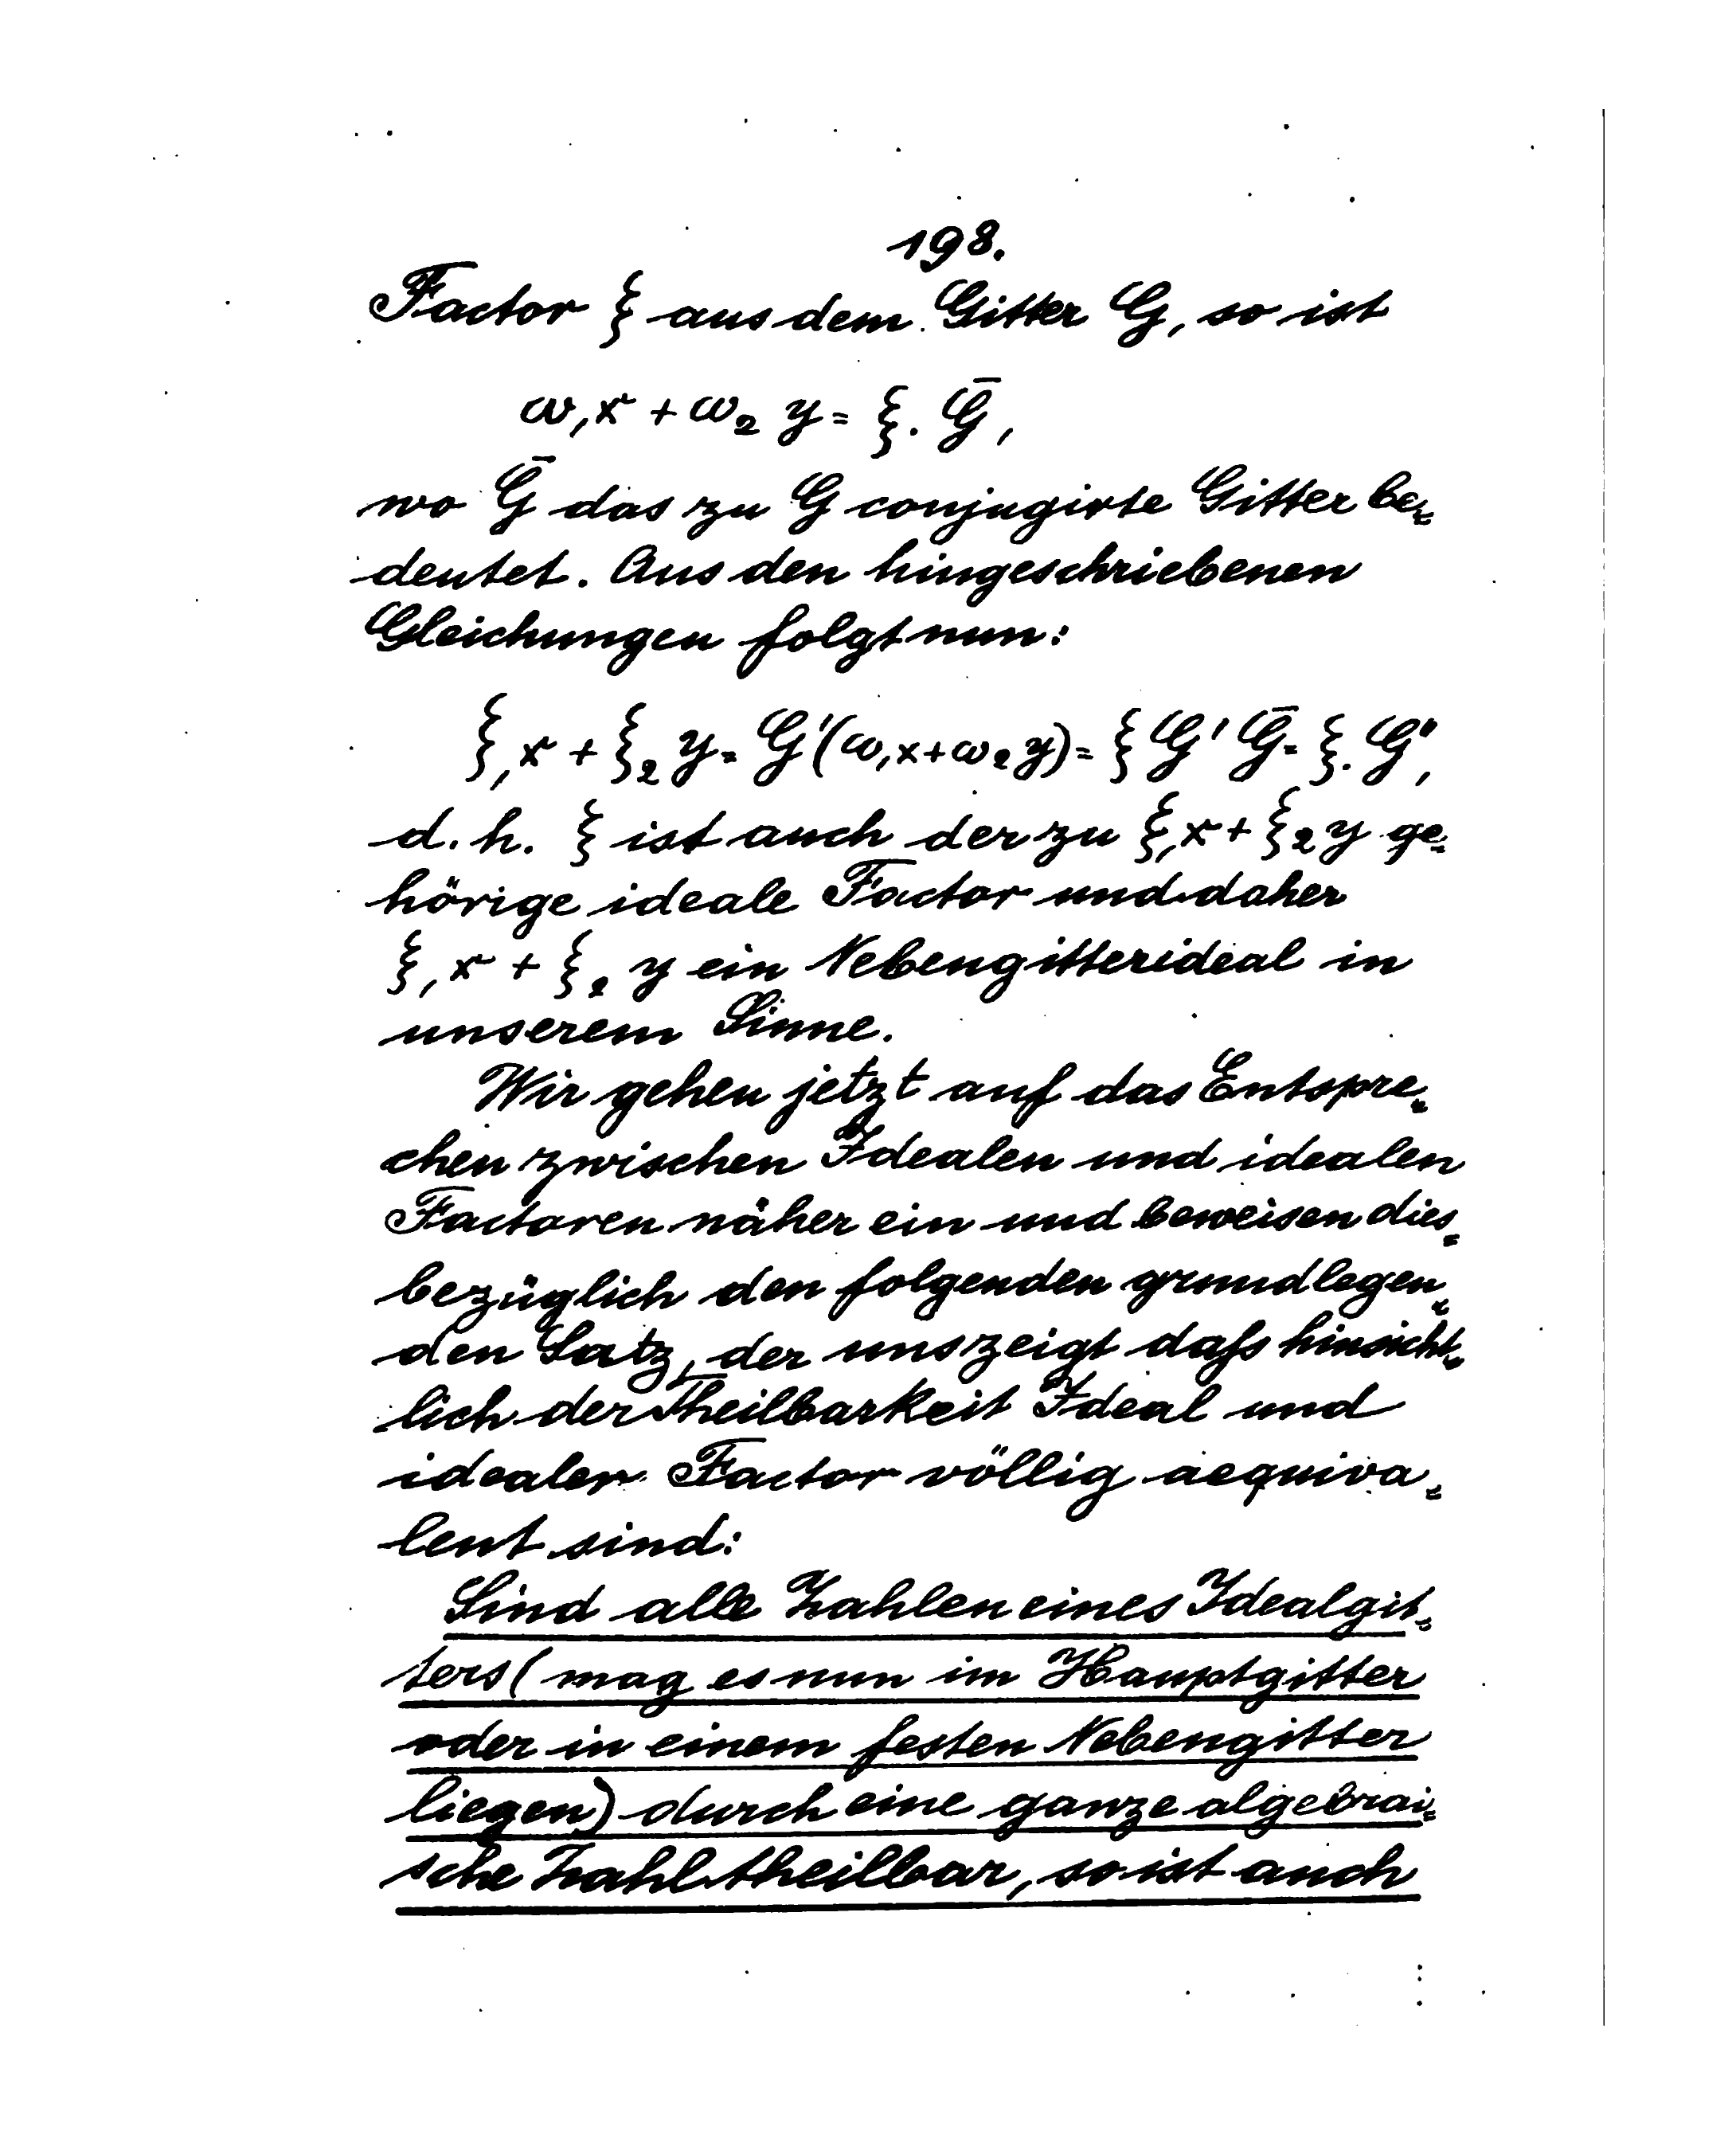 198.
Factor ξ aus dem Gitter G, so ist
ω₁x + ω₂ y = ξ. Ḡ,
wo Ḡ das zu G conjugirte Gitter be=
deutet. Aus den hingeschriebenen
Gleichungen folgt nun:
ξ₁x + ξ₂ y = G'(ω₁x+ω₂y) = ξ G' Ḡ = ξ. G",
d. h. ξ ist auch der zu ξ₁x + ξ₂ y ge=
hörige ideale Factor und daher
ξ₁x + ξ₂ y ein Nebengitterideal in
unserem Sinne.
Wir gehen jetzt auf das Entspre=
chen zwischen Idealen und idealen
Factoren näher ein und beweisen dies=
bezüglich den folgenden grundlegen=
den Satz, der uns zeigt daſs hinsicht=
lich der Theilbarkeit Ideal und
idealer Factor völlig aequiva=
lent sind:
Sind alle Zahlen eines Idealgit=
ters (mag es nun im Hauptgitter
oder in einem festen Nebengitter
liegen) durch eine ganze algebrai=
sche Zahl theilbar, so ist auch